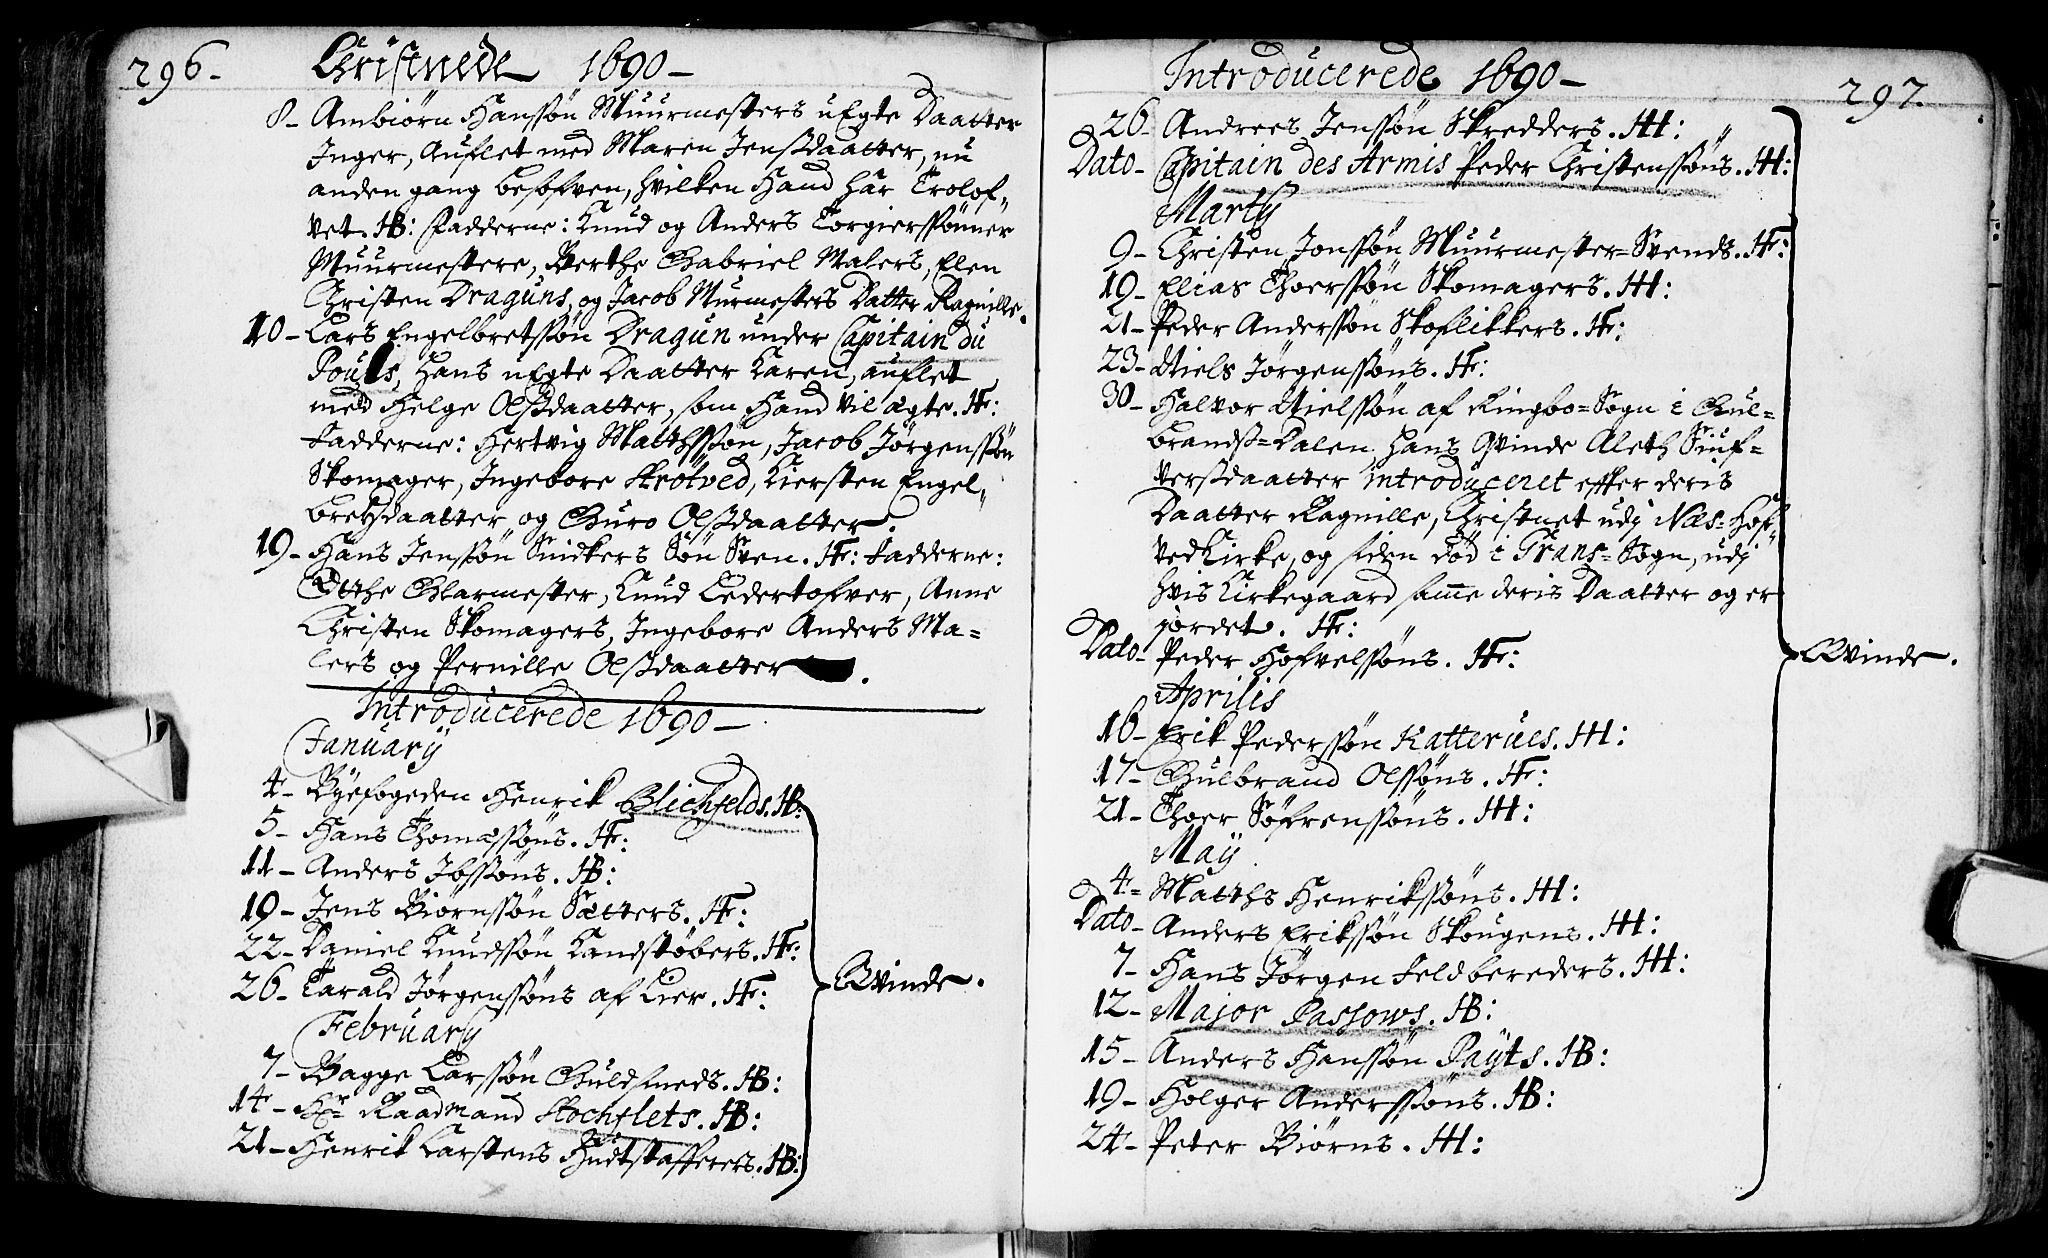 296-
Christnede 1690-
8- Ambiörn Hanssön Muurmesters uEgte Daatter
Inger, Auflet med Maren Jenssdaatter, nu
anden gang besofven, hvilken Hand här Trolof,,
vet. HB: Fadderne: Knud og Anders Torgierssönner
Muurmestere, Berthe Gabriel Malers, Elen
Christen Draguns, og Jacob Murmesters Datter Ragnille.
10- Lars Engelbretssön Dragun under Capitain du
Pouls, Hans uEgte Daatter Karen, auflet
med Helge Olssdaatter, som Hand vil ægte. HF:
Fadderne: Hertvig Matthssön, Jacob Jörgenssön
Skomager, Ingebore Strötved, Kiersten Engel,,
bretsdaatter og Guro Olssdaatter.
19- Hans Jenssön Snidkers Sön Sven. HF: Fadderne:
Otthe Glarmester, Knud Ledertofver, Anne
Christen Skomagers, Ingebore Anders Ma=
lers og Pernille Olssdaatter.
Introducerede 1690-
January
4- Byefogeden Henrik Blichfelds. HB:
5- Hans Thomæssöns. HF:
11- Anders Ibssöns. HB:
19- Jens Biörnssön Sætters. HF:
22- Daniel Knudssön Kandstöbers. HF:
26- Tarald Jörgenssöns af Lier. HF:
Qvinde.
February
7- Bagge Larssön Guldsmeds. HB:
14- Hr Raadmand Stochflets. HB:
21- Henrik Karstens Hudtstafferers. HB:
Introducerede 1690-
297.
26- Andrees Jenssön Skredders. HH:
Dato- Capitain des Armis Peder Christenssöns. HH:
Marty
9- Christen Jonssön Muurmester=Svends. HF:
19- Elias Thoerssön Skomagers. HH:
21- Peder Anderssön Skoflikkers. HF:
23- Niels Jörgenssöns. HF:
30- Halvor Nielssön af Ringbo=Sogn i Gul=
brandss=Dalen, Hans Qvinde Aleth Siuf=
verssdaatter introduceret effter deris
Daatter Ragnille, Christnet udj Næs=Hof,,
vedKirke, og siden död i Trans=Sogn, udj
hvis Kirkegaard samme deris Daatter og er
jordet. HF:
Dato- Peder Hofvelssöns. HF:
Qvinde.
Aprilis
16- Erik Pederssön Katterues. HH:
17- Gulbrand Olssöns. HF:
21- Thoer Söfrenssöns. HH:
May
4- Matths Henrikssöns. HH:
Dato- Anders Erikssön Skougens. HH:
7- Hans Jörgen Feldbereders. HH:
12- Major Passows. HB:
15- Anders Hanssön Payts. HB:
19- Holger Anderssöns. HB:
24- Peter Biörns. HH: